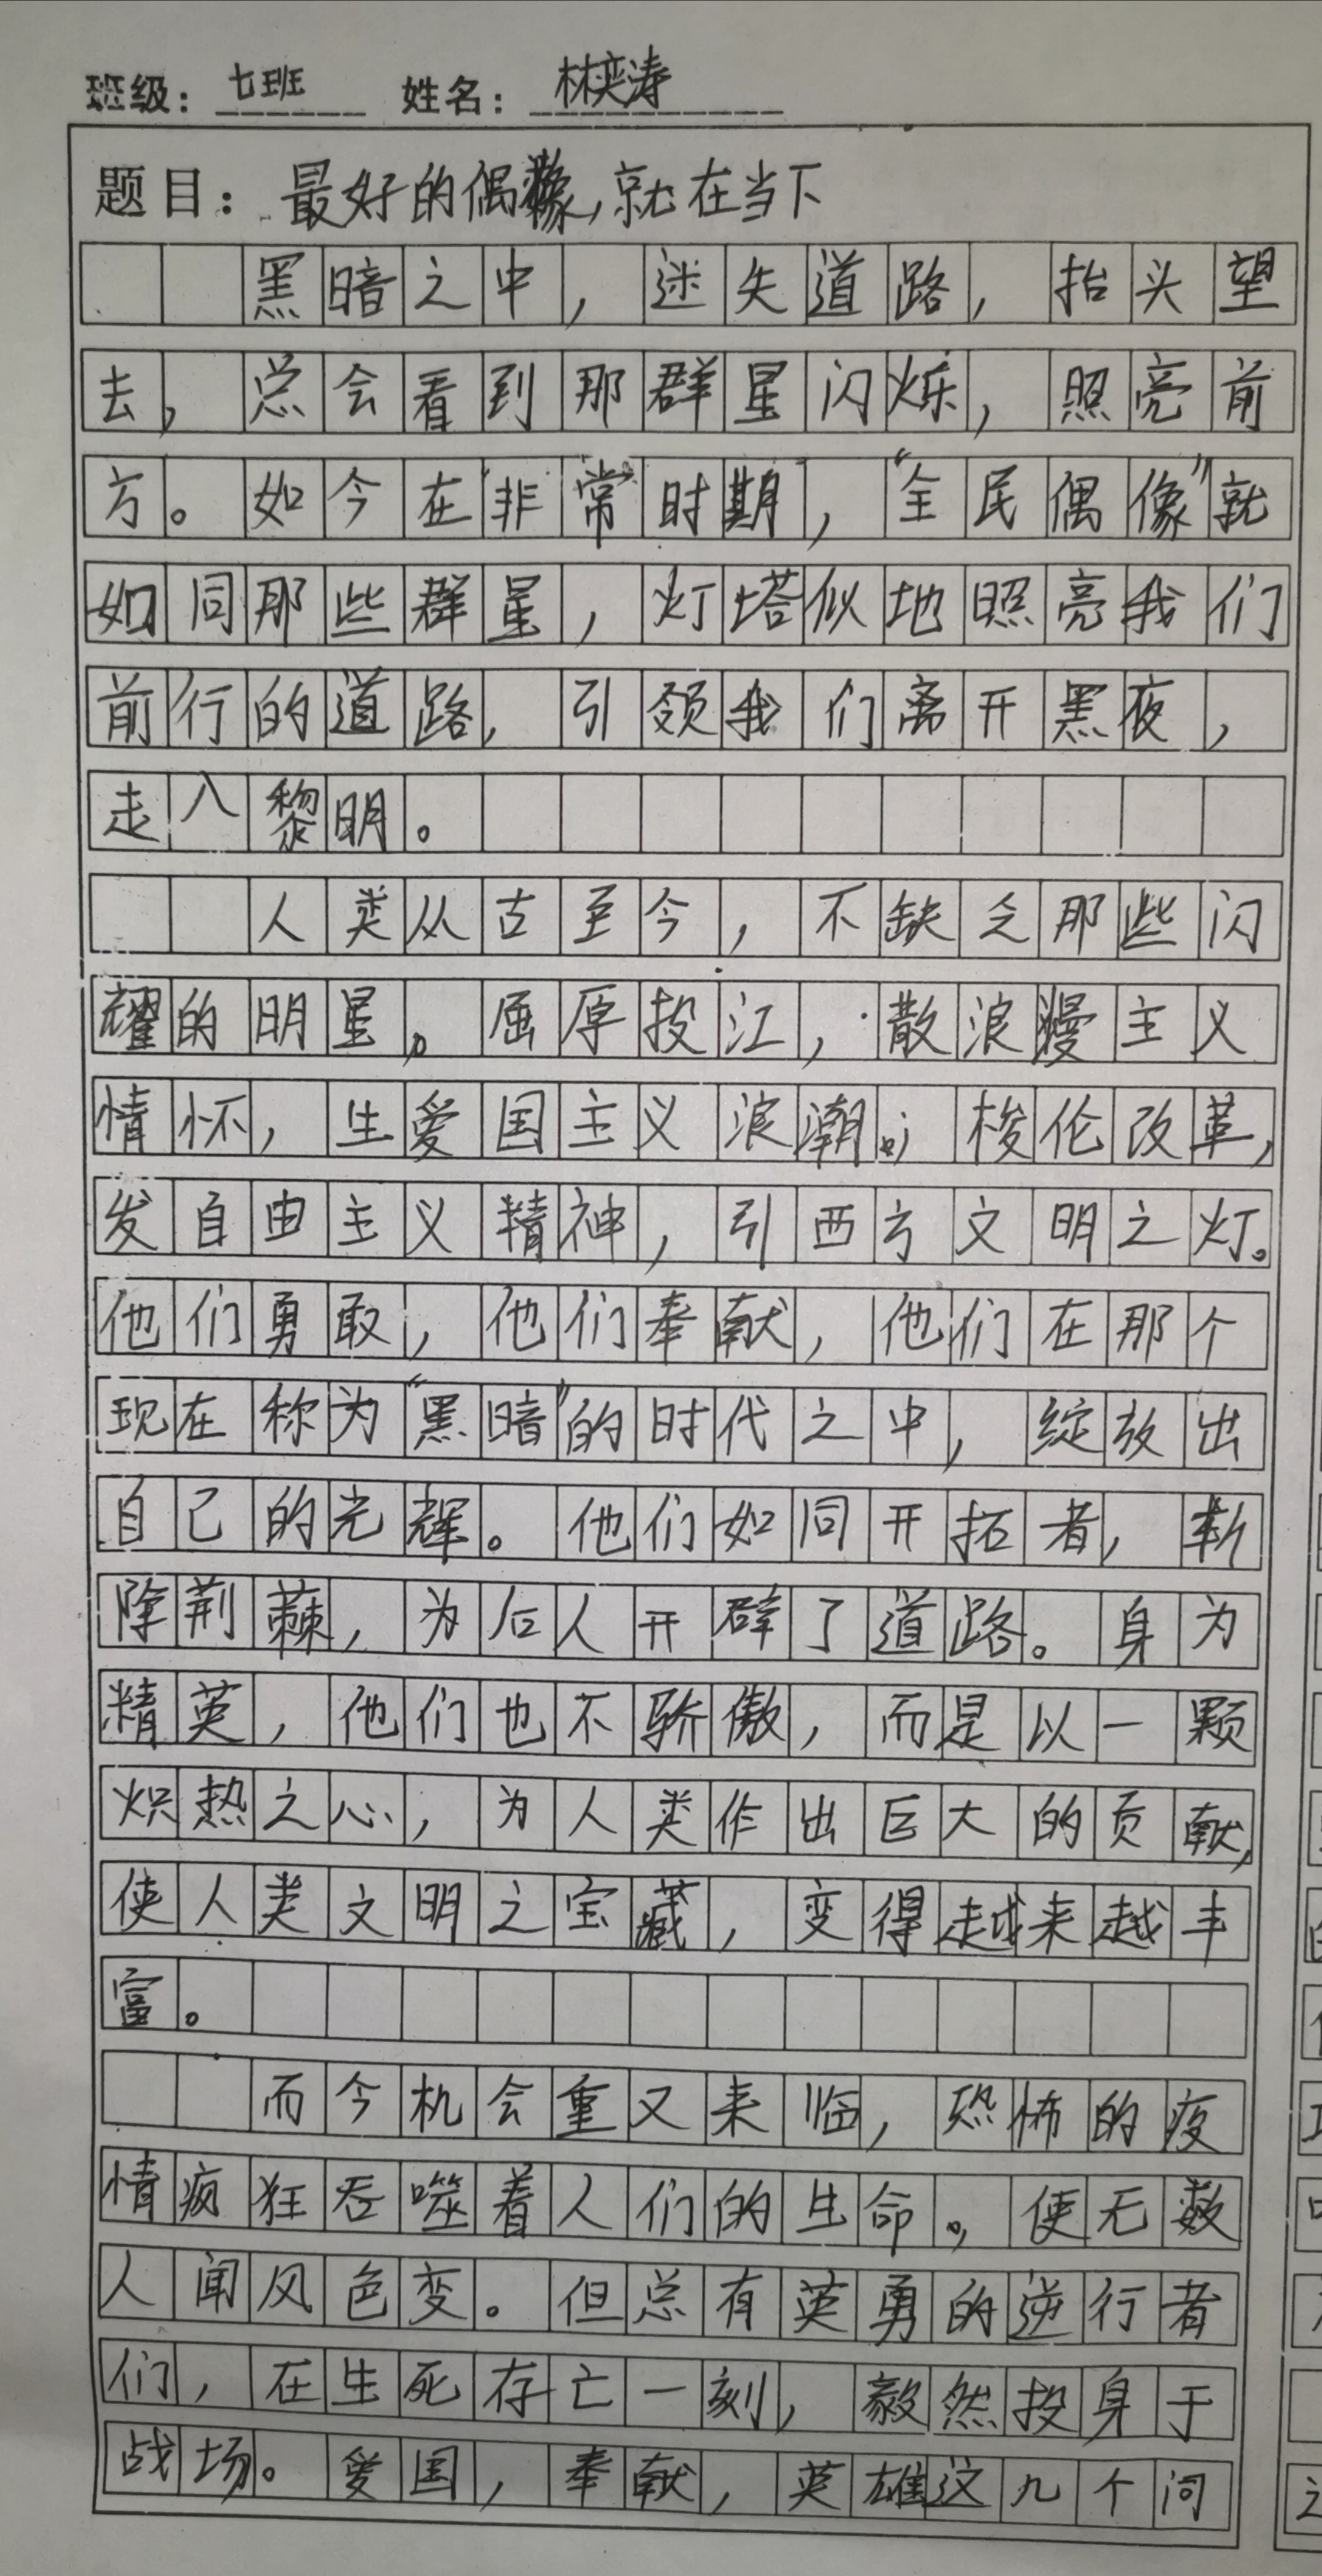 班级：七班 姓名：林奕涛
题目：最好的偶像，就在当下
黑暗之中，迷失道路，抬头望
去，总会看到那群星闪烁，照亮前
方。如今在“非常”时期，“全民偶像”就
如同那些群星，灯塔似地照亮我们
前行的道路，引领我们离开黑夜，
走入黎明。
人类从古至今，不缺乏那些闪
耀的明星。屈原投江，散浪漫主义
情怀，生爱国主义浪潮；梭伦改革，
发自由主义精神，引西方文明之灯。
他们勇敢，他们奉献，他们在那个
现在称为“黑暗”的时代之中，绽放出
自己的光辉。他们如同开拓者，斩
除荆棘，为后人开辟了道路。身为
精英，他们也不骄傲，而是以一颗
炽热之心，为人类作出巨大的贡献，
使人类文明之宝藏，变得越来越丰
富。
而今机会重又来临，恐怖的疫
情疯狂吞噬着人们的生命。使无数
人闻风色变。但总有英勇的逆行者
们，在生死存亡一刻，毅然投身于
战场。爱国，奉献，英雄这几个词